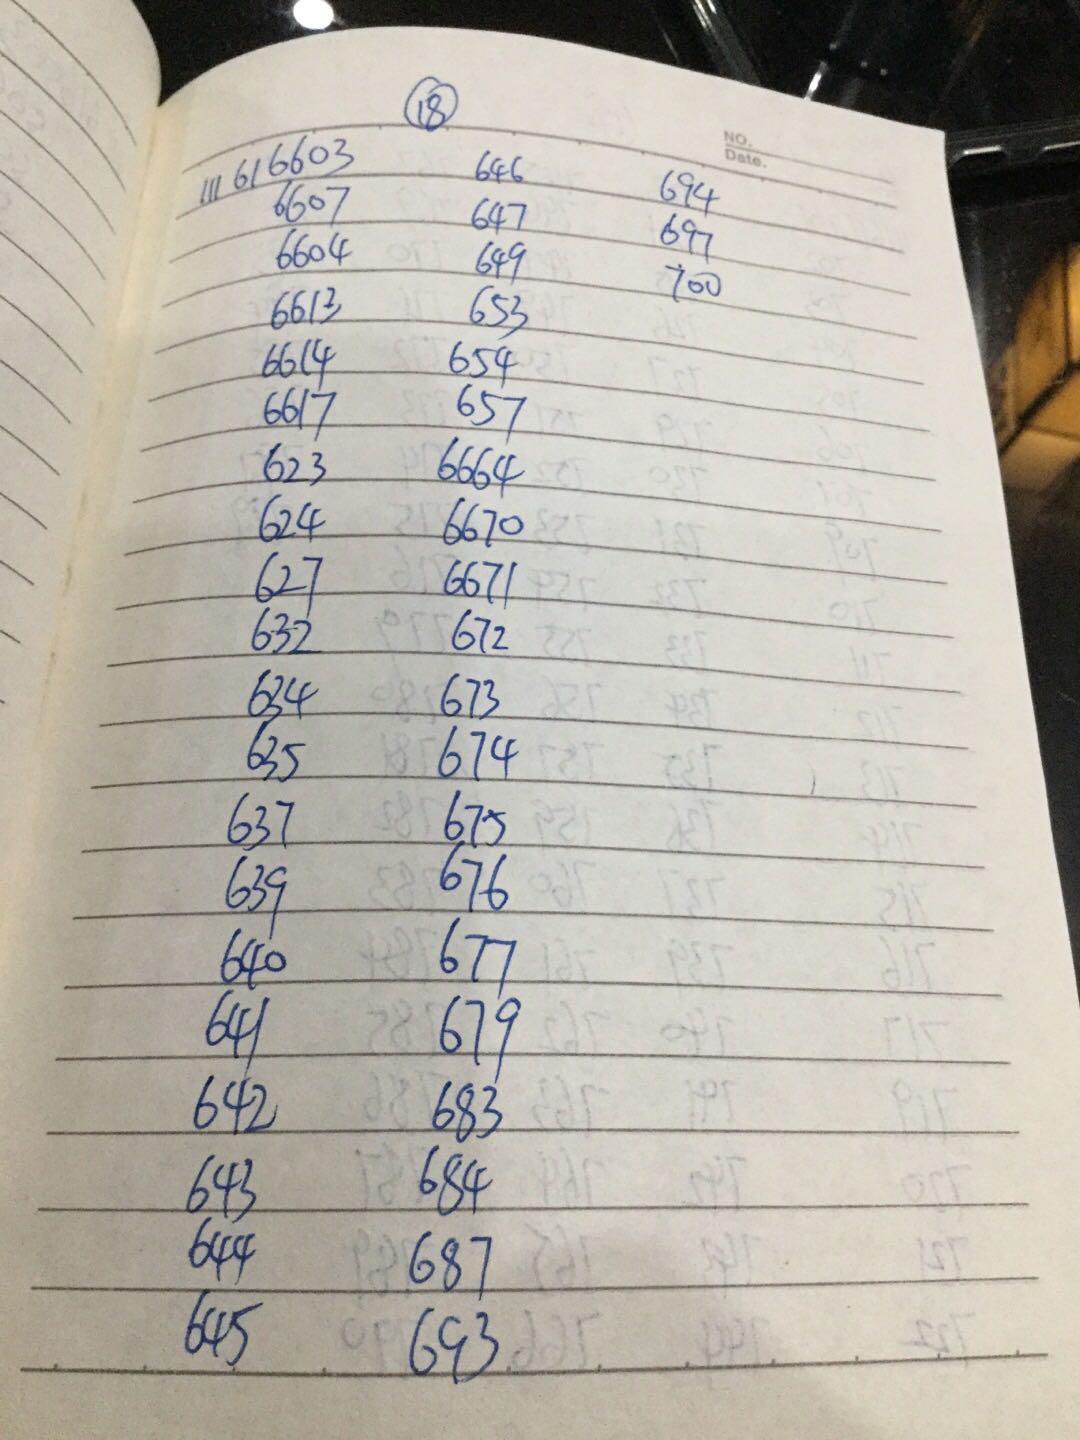 18
NO.
Date.
111 61 6603
6607
6604
6613
6614
6617
623
624
627
632
634
635
637
639
640
641
642
643
644
645
646
647
649
653
654
657
6664
6670
6671
672
673
674
675
676
677
679
683
684
687
693
694
697
700